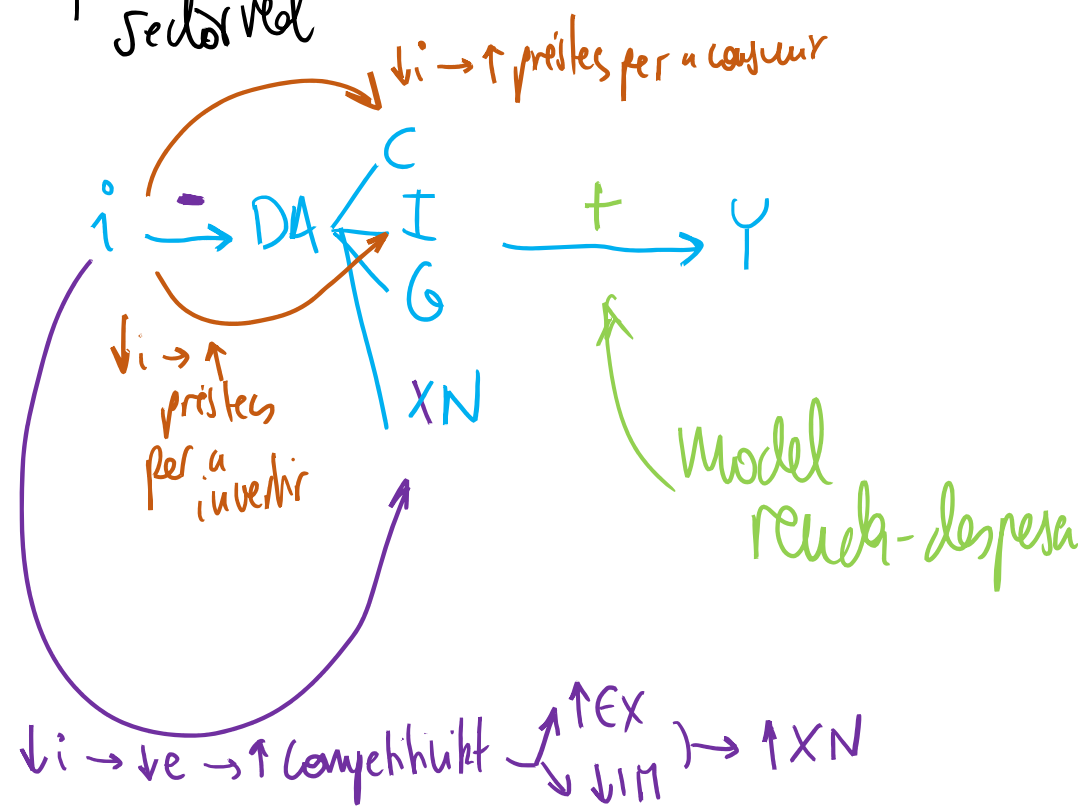 sector real
↓i → ↑ préstecs per a consumir
C
i - → DA I + → Y
G
XN
↓i → ↑
préstecs
per a
invertir
model
renda-despesa
↓i → ↓e → ↑ competitivitat ↑EX ↓IM → ↑XN